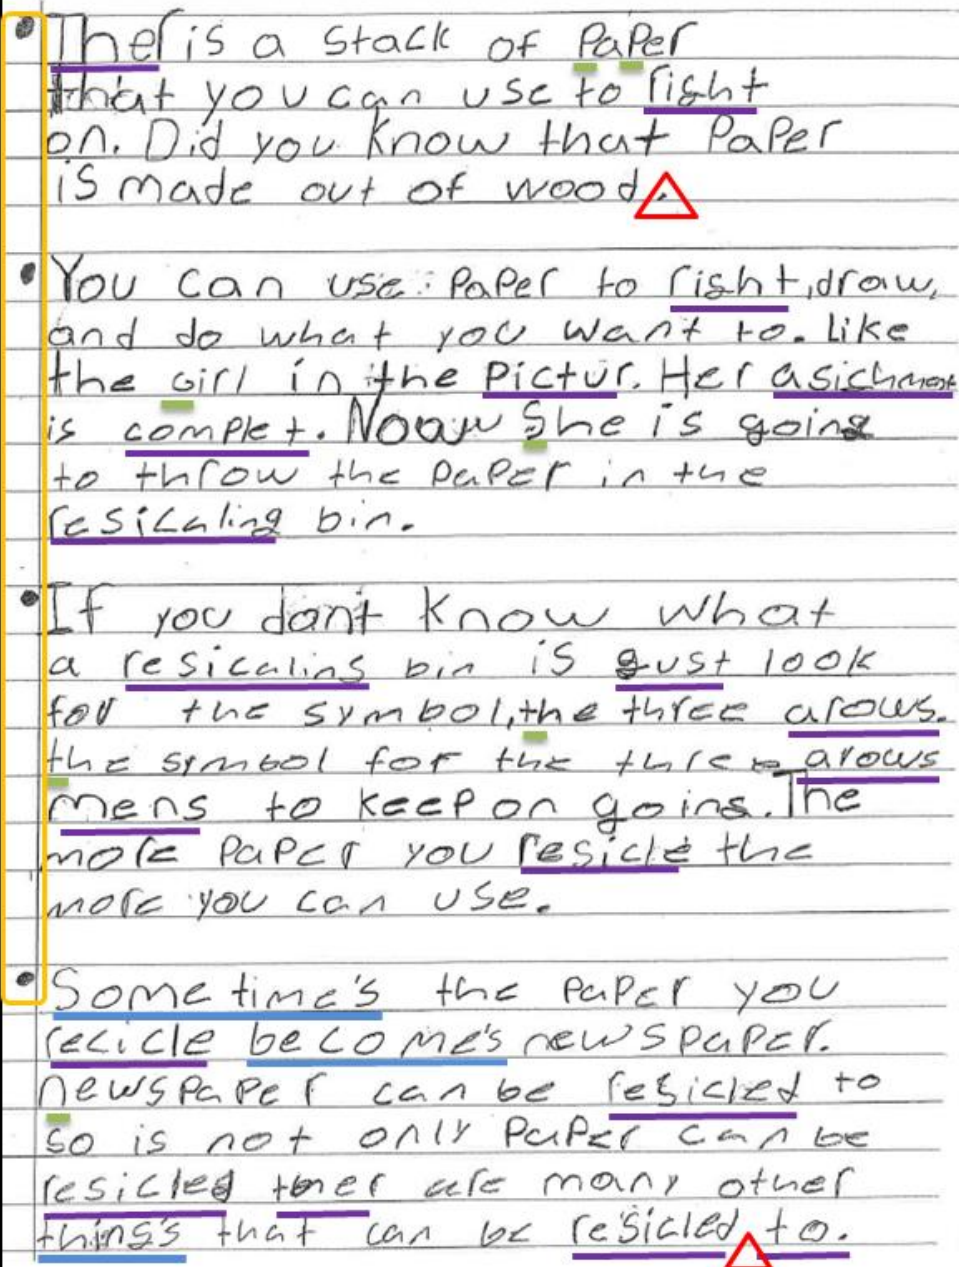 Ther is a stack of PaPer
that you can use to right
on. Did you know that PaPer
is made out of wood.
You can use PaPer to right, draw,
and do what you want to. Like
the Girl in the Pictur. Her asichment
is complet. Noow She is going
to throw the PaPer in the
resicaling bin.
If you dont know what
a resicaling bin is gust look
for the symbol, the three arows.
the symbol for the three arows
mens to keep on going. The
more PaPer you resicle the
more you can use.
Sometime's the PaPer you
recicle become's newspaper.
newspaper can be resicled to
so is not only PaPer can be
resicled ther are many other
thing's that can be resicled to.